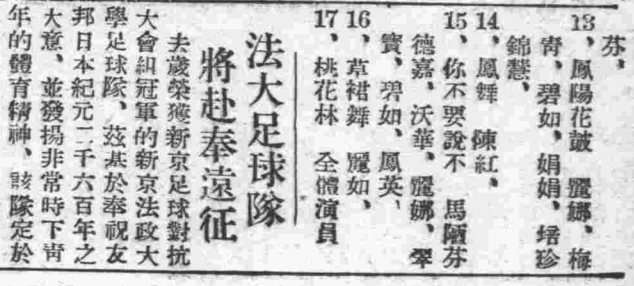 芬、
13、鳳陽花鼓　麗娜、梅
青、碧如、娟娟、培珍
錦慧、
14、鳳舞　陳紅、
15、你不要說不　馬陋芬
德嘉、沃華、麗娜、翠
寶、碧如、鳳英、
16、草裙舞　麗如、
17、桃花林　全體演員
法大足球隊
將赴奉遠征
去歲榮獲新京足球對抗
大會糾冠軍的新京法政大
學足球隊、茲基於奉祝友
邦日本紀元二千六百年之
大意、並發揚非常時下靑
年的體育精神、該隊定於